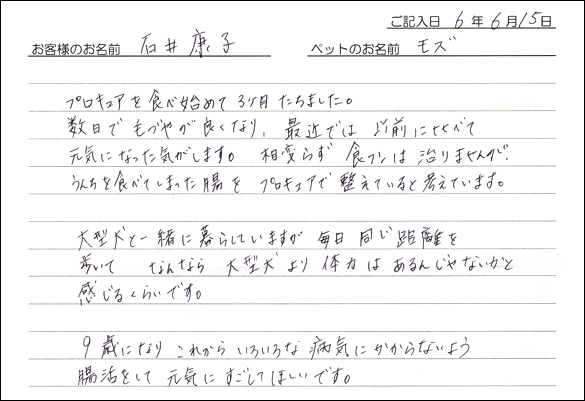 ご記入日 6年 6月 15日
お客様のお名前 石井 康子 ペットのお名前 モズ
プロキュアを食べ始めて 3ヶ月 たちました。
数日で毛づやが良くなり、最近では 以前に比べて
元気になった気がします。 相変らず 食フンは 治りませんが、
うんちを食べてしまった腸を プロキュアで整えていると考えています。
大型犬と一緒に暮らしていますが 毎日 同じ 距離を
歩いて なんなら 大型犬より 体力は あるんじゃないかと
感じるくらいです。
9歳になり これから いろいろな 病気に かからないよう
腸活をして 元気に すごしてほしいです。